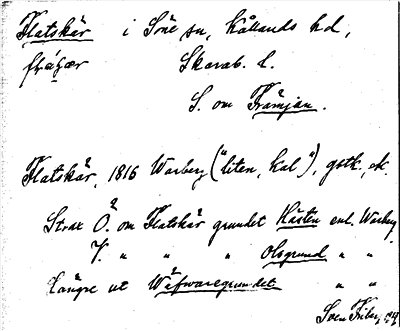 Flatskär i Söne sn, Kållands hd,
Skarab. l.
S. om Främjan.
Flatskär, 1816 Warberg ("liten, kal"), gstk, ek.
Strax Ö. om Flatskär grundet Hästen enl. Warberg
V. " " " Olsgrund " "
Längre ut Wäfwaregrundet " "